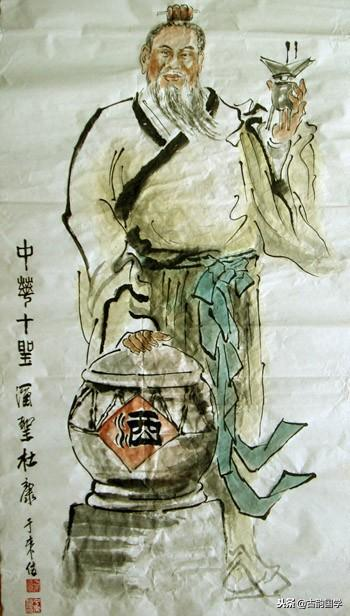 中華十聖 酒聖杜康
酒
头条 @古韵国学